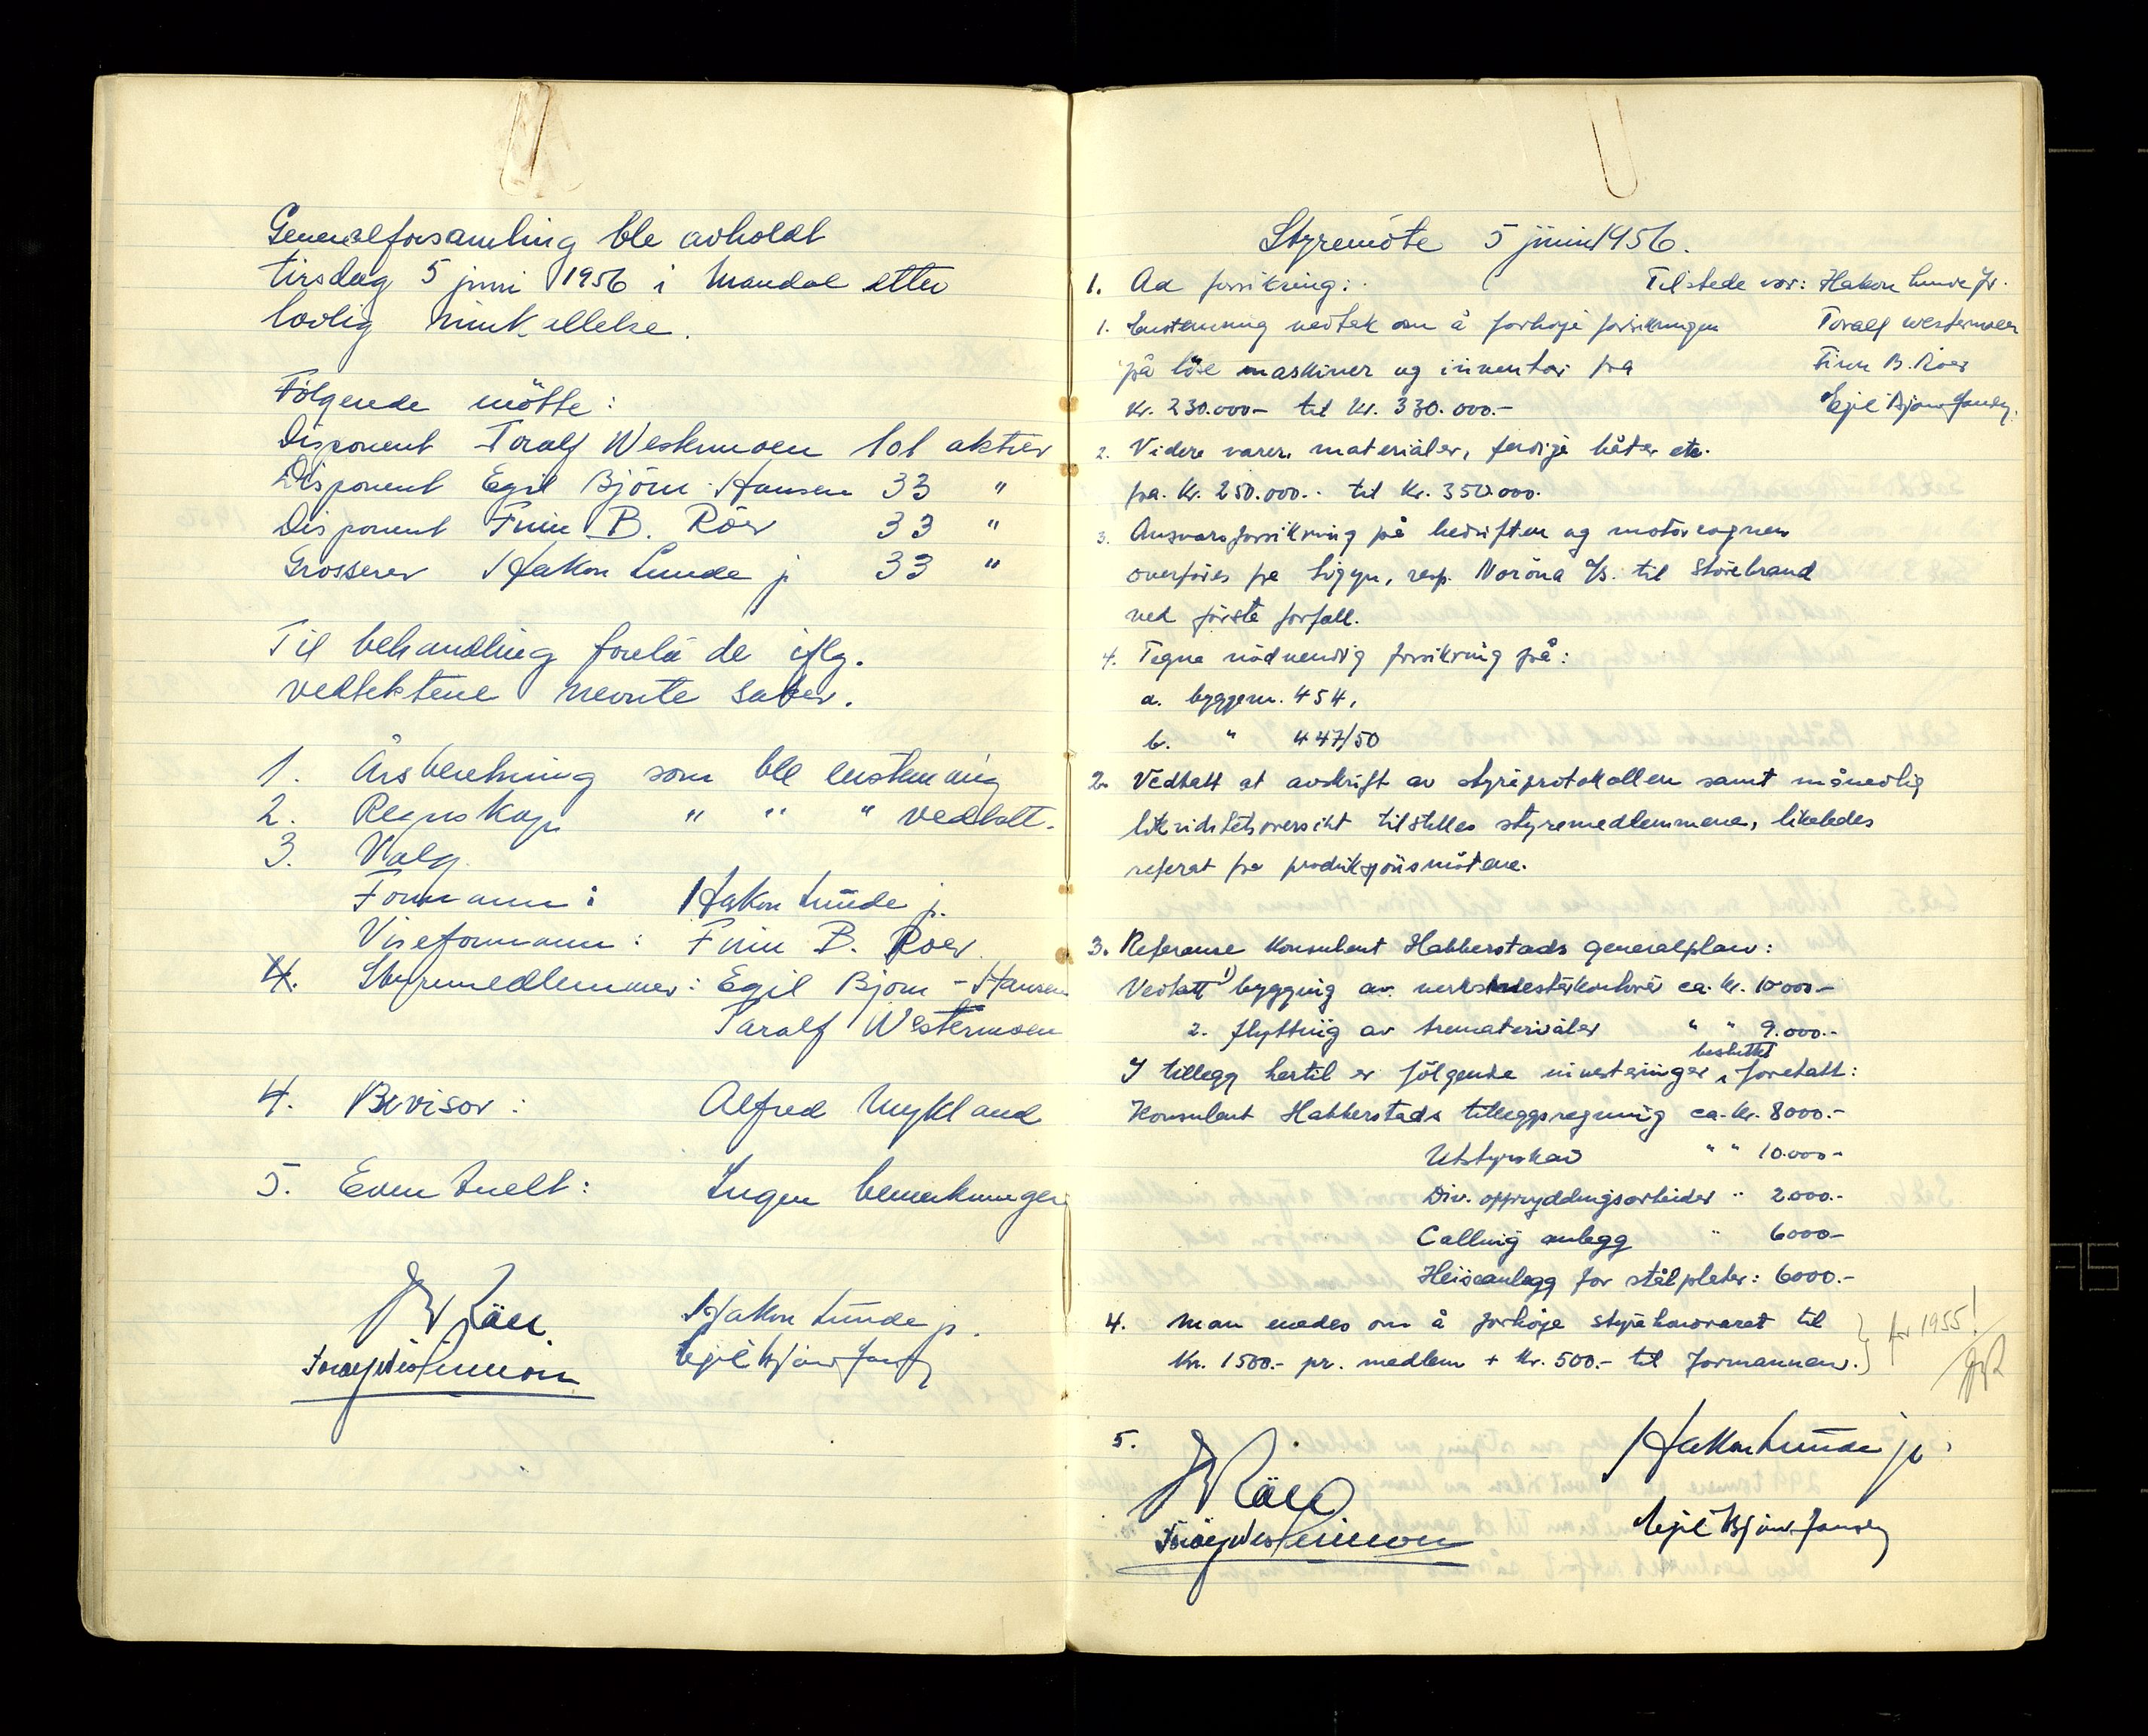 Generalforsamling ble avholdt
tirsdag 5 juni 1956 i Mandal etter
lovlig innkallelse.
Følgende mötte:
Disponent Toralf Westermoen 101 aktier
Disponent Egil Björn-Hansen 33 "
Disponent Finn B. Röer 33 "
Grosserer Hakon Lunde jr 33 "
Til behandling forelå de iflg.
vedtektene nevnte saker.
1. Årsberetning som ble enstemmig
2. Regnskap " " " vedtatt.
3. Valg
Formann: Hakon Lunde jr.
Viseformann: Finn B. Roer
4. Styremedlemmer: Egil Bjorn-Hansen
Toralf Westermoen
4. Revisor: Alfred Nykland
5. Eventuelt: Ingen bemerkninger
Hakon Lunde jr.
Styremöte 5 juni 1956.
1. Ad forsikring: Tilstede var: Hakon Lunde jr.
1. Enstemmig vedtak om å forhöje forsikringen Toralf Westermoen
på löse maskiner og inventar fra Finn B. Röer
Kr. 230.000- til Kr. 330.000.- Egil Bjørn Hansen.
2. Videre varer, materialer, ferdige båter etc.
fra Kr. 250.000.- til Kr. 350.000.
3. Ansvarsforsikring på bedriften og motorvognen
overföres fra Sigyn, resp. Noröna A/S. til Storebrand
ved förste forfall.
4. Tegne nödvendig forsikring på:
a. byggenr. 454,
b. " 447/50
2. Vedtatt at avskrift av styreprotokollen samt månedlig
likviditetsoversikt tilstilles styremedlemmene, likeledes
referat fra produksjonsmötene.
3. Referanse konsulent Habberstads generalplan:
Vedtatt 1) bygging av verksmesterkontorer ca. Kr. 10000-
2. flytting av trematerialer " " 9.000.-
besluttet
I tillegg hertil er fölgende investeringer foretatt:
Konsulent Habberstads tilleggsregning ca. Kr. 8000.-
Utstyrskar " " 10.000-
Div. oppryddingsarbeider " 2000.-
Calling anlegg " 6000-
Heiseanlegg for stålplater: 6000.-
4. Man enedes om å forhöje styrehonoraret til
Kr. 1500.- pr. medlem + Kr. 500.- til formannen. } for 1955!
5.
Hakon Lunde jr.